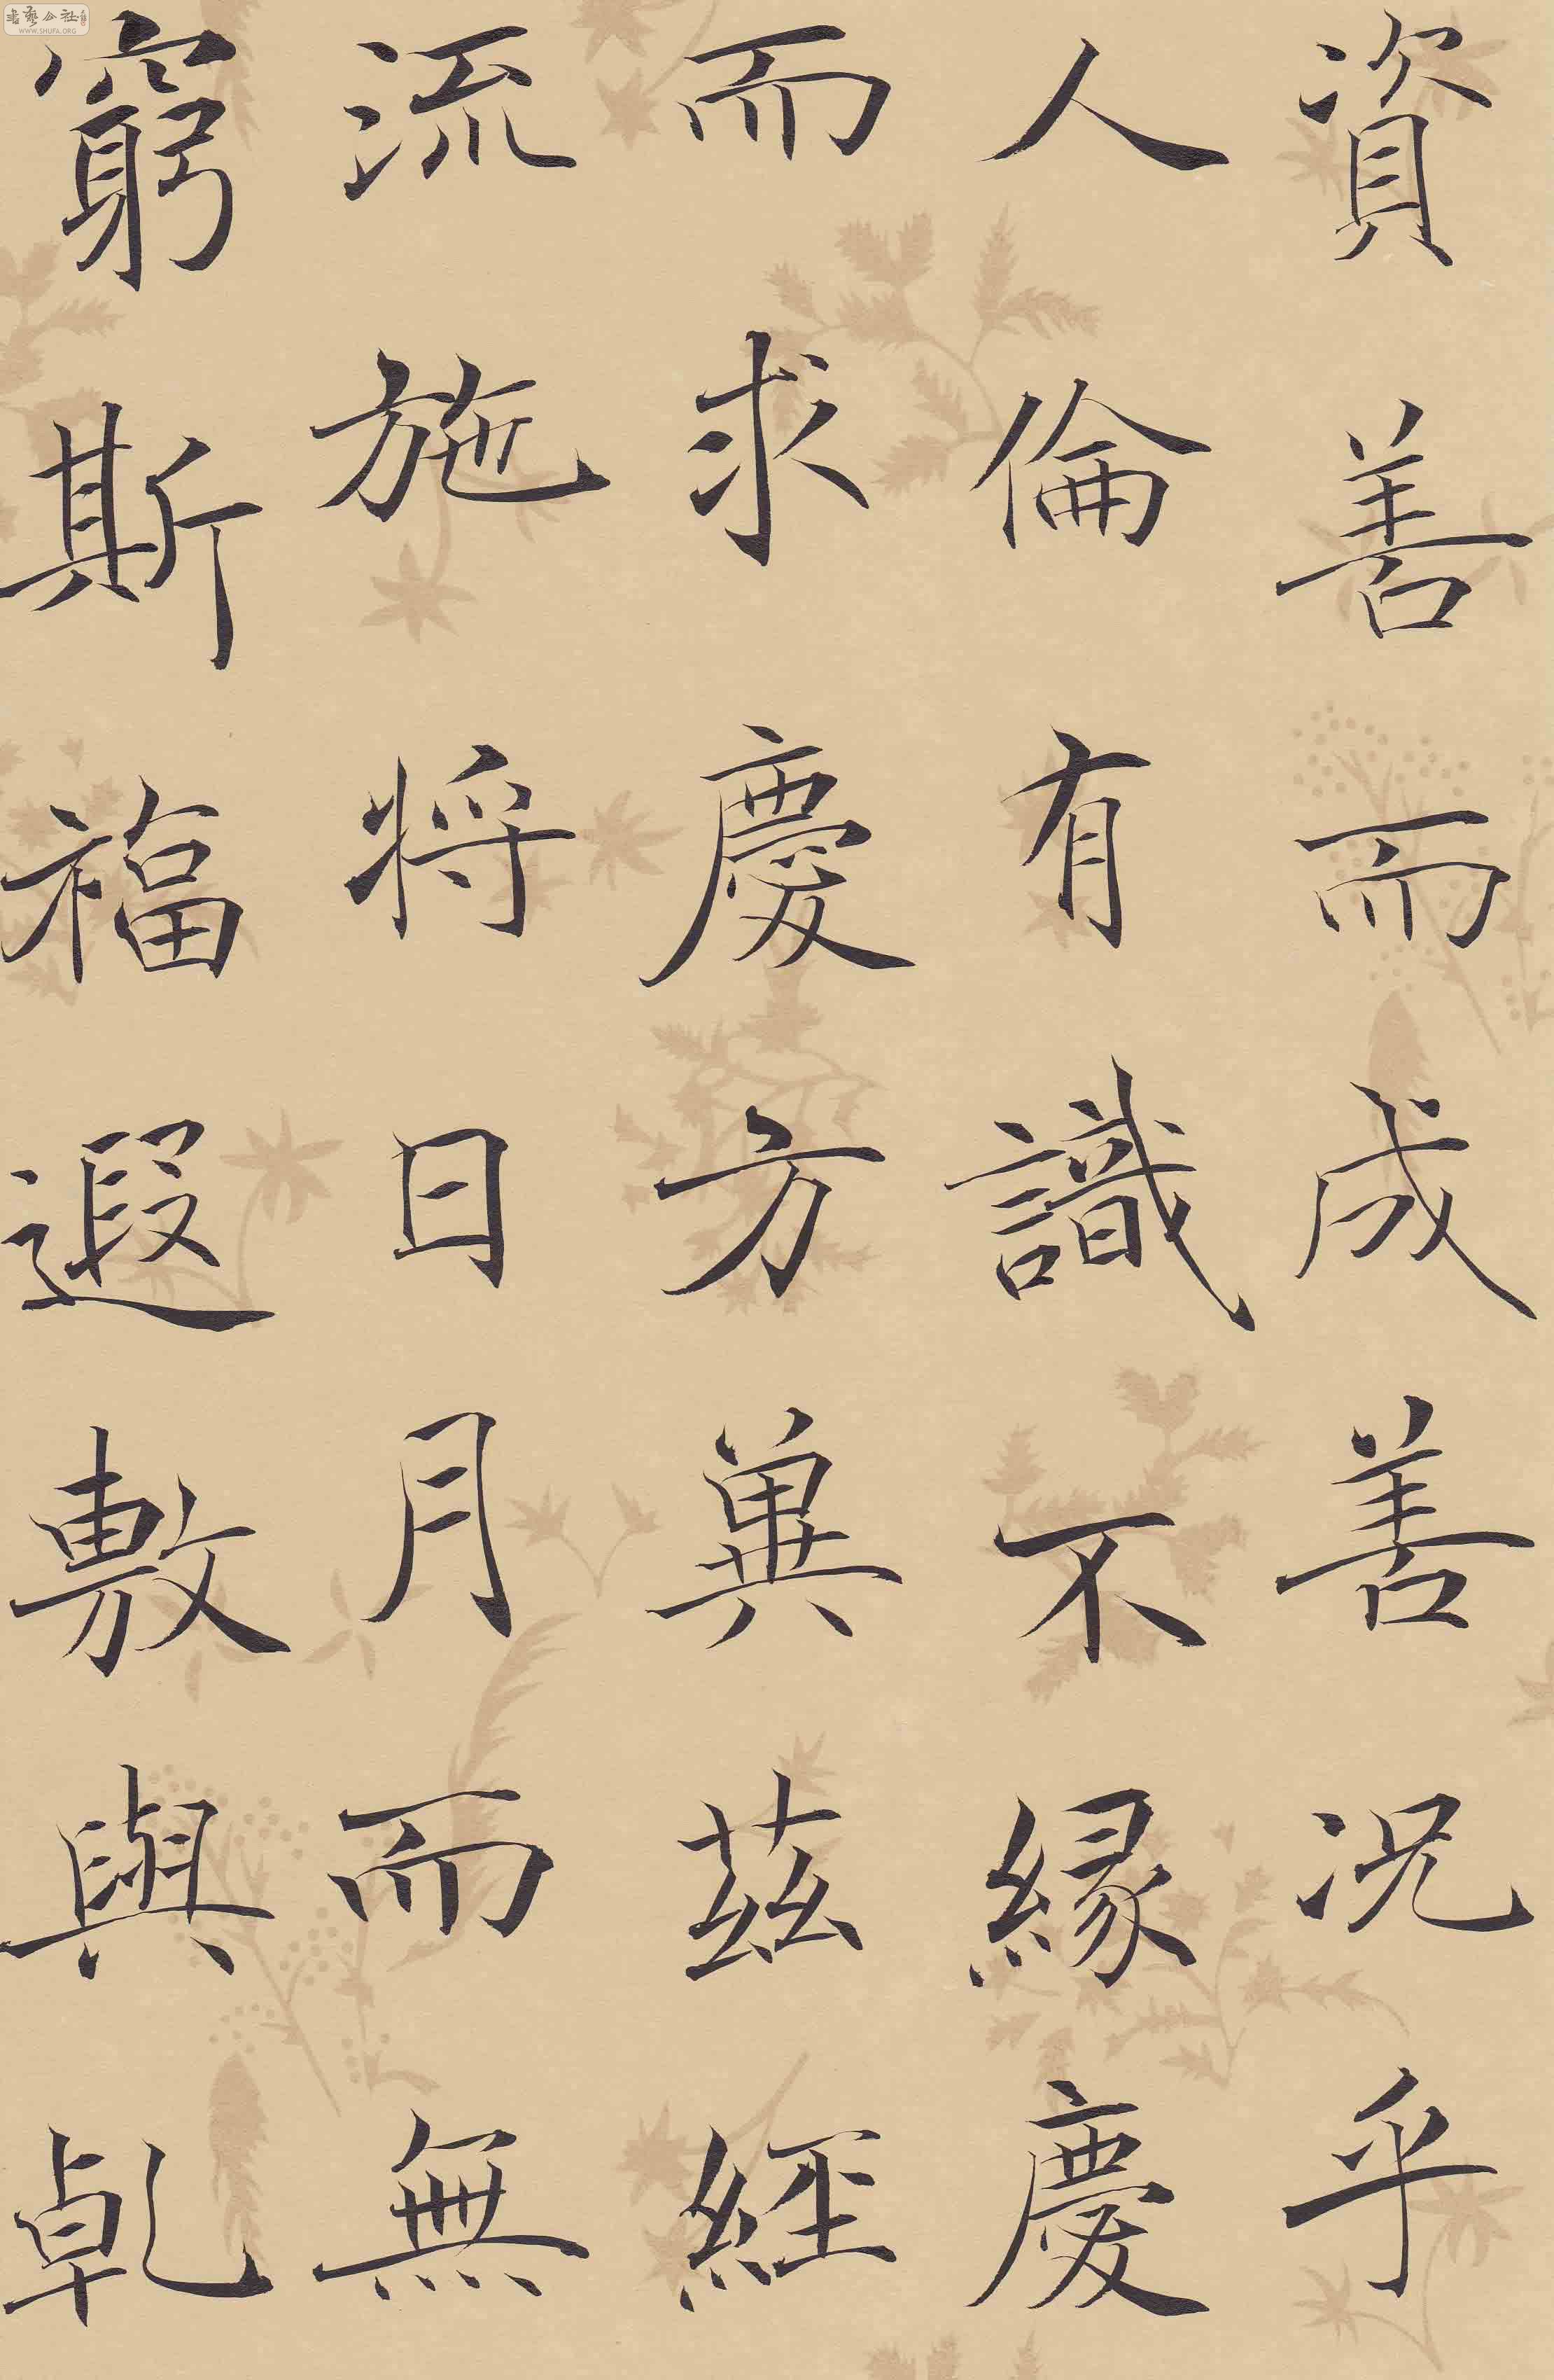 資善而成善況乎
人倫有識不緣慶
而求慶方冀茲經
流施將日月而無
窮斯福遐敷與乾
書藝公社
WWW.SHUFA.ORG